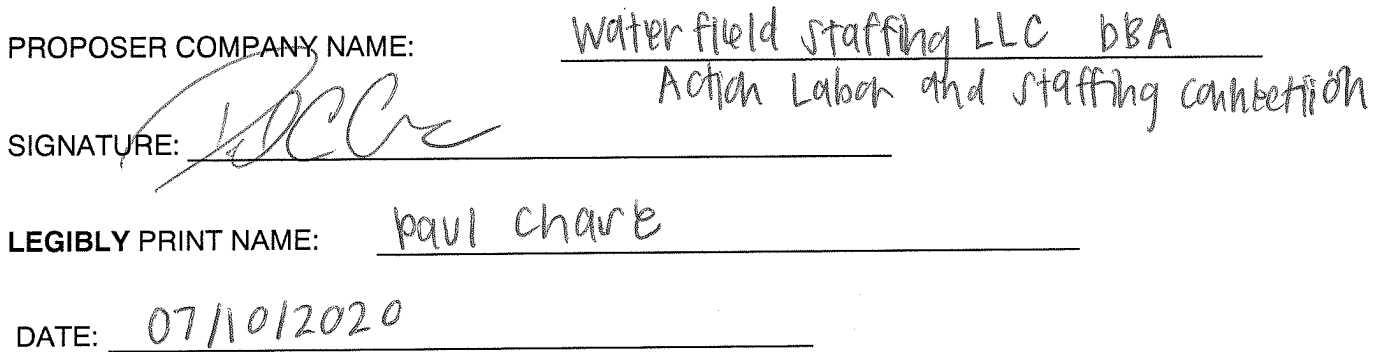 PROPOSER COMPANY NAME: Waterfield Staffing LLC DBA
Action Labor and Staffing Connection
SIGNATURE:
LEGIBLY PRINT NAME: Paul Chare
DATE: 07/10/2020